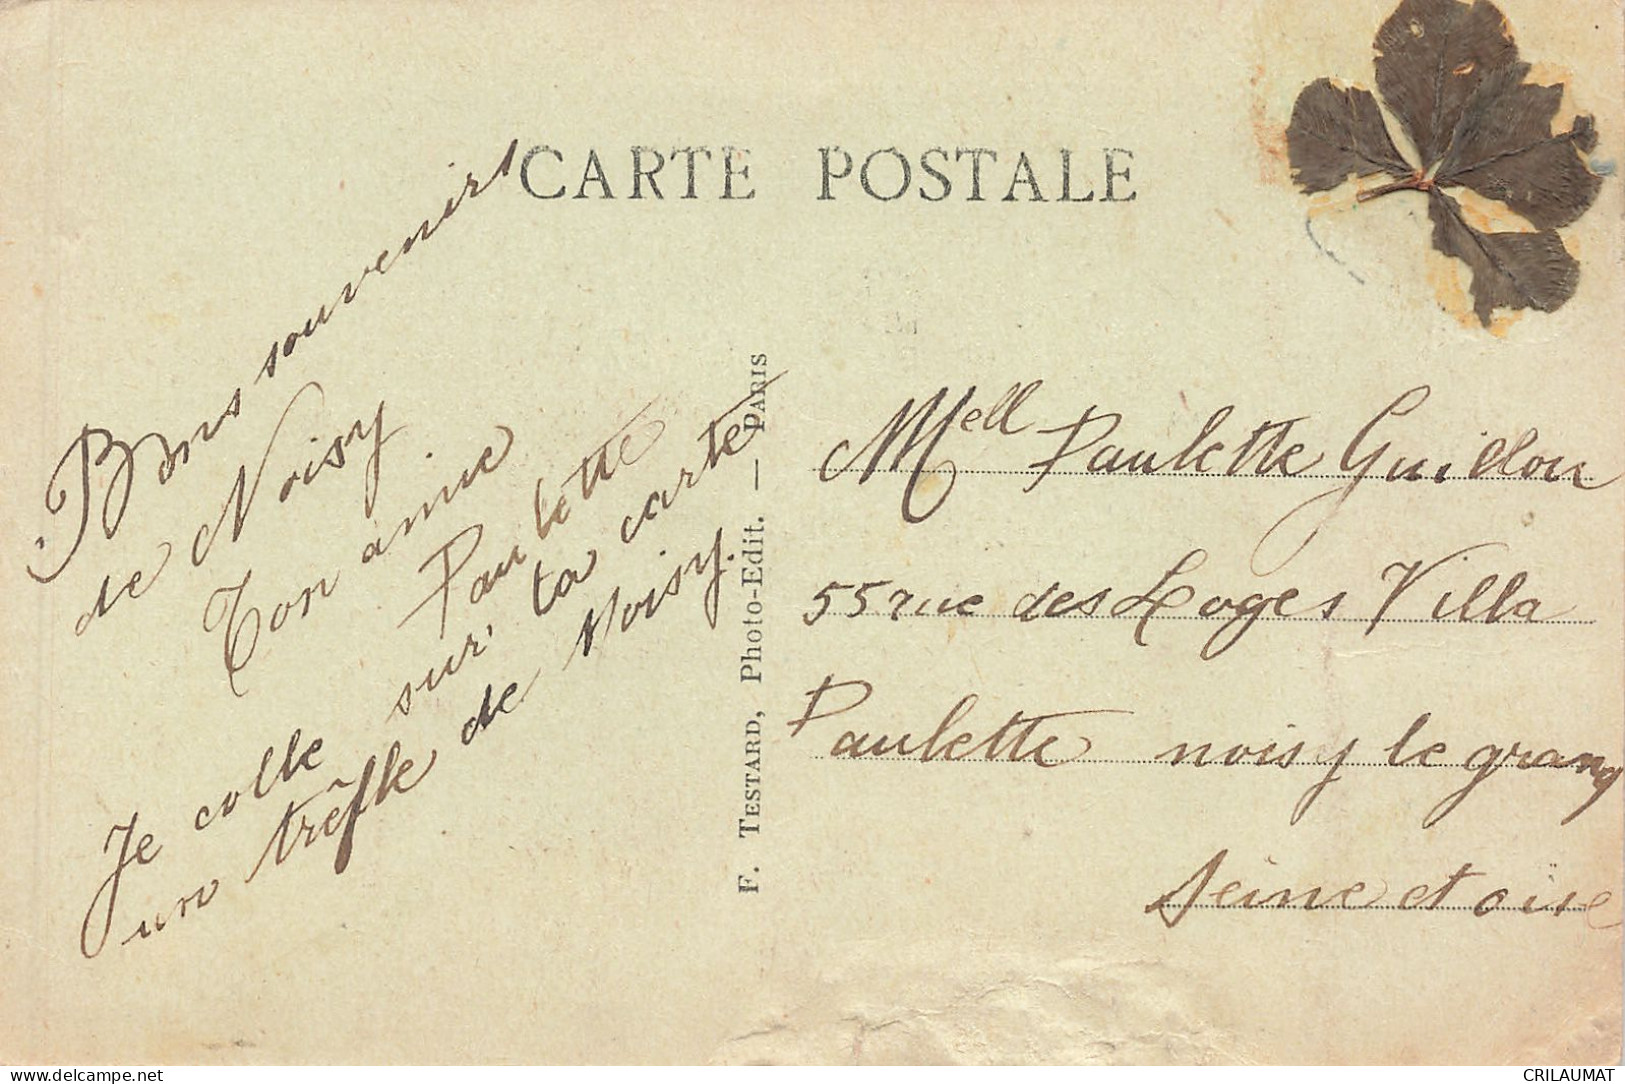 CARTE POSTALE
Bons souvenirs
de Noisy
Ton amie
Paulette
Je colle sur ta carte
un trêfle de Noisy.
F. TESTARD, Photo-Edit. — PARIS
Mell Paulette Guidou
55 rue des Loges Villa
Paulette noisy le grand
Seine et oise
delcampe.net
CRILAUMAT